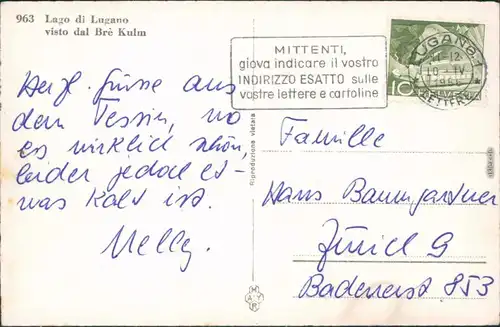 963 Lago di Lugano
visto dal Brè Kulm
MITTENTI,
giova indicare il vostro
INDIRIZZO ESATTO sulle
vostre lettere e cartoline
LUGANO 1
12
19.IV
LETTERE
10
Herzl. Grüsse aus
dem Tessin, wo
es wirklich schön,
leider jedoch et-
was kalt ist.
Nelly.
Riproduzione vietata
Familie
Hans Baumgartner
Zürich 9
Badenerst 853